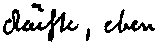 dürfte, eben